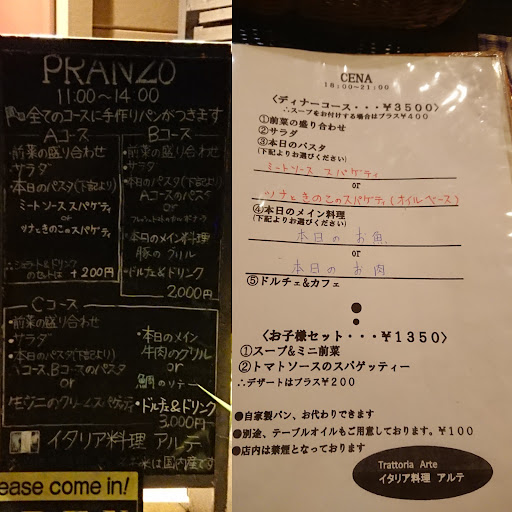 PRANZO
11:00～14:00
全てのコースに手作りパンがつきます
Aコース
・前菜の盛り合わせ
・サラダ
・本日のパスタ(下記より)
ミートソース スパゲティ
or
ツナときのこのスパゲティ
のセットは +200円
Bコース
・前菜の盛り合わせ
・サラダ
・本日のパスタ(下記より)
Aコースのパスタ
or
・本日のメイン料理
豚のグリル
・ドルチェ&ドリンク
2,000円
Cコース
・前菜の盛り合わせ
・サラダ
・本日のパスタ(下記より)
Aコース、Bコースのパスタ
or
生ウニのクリームスパゲッティ
・本日のメイン
牛肉のグリル
or
鯛のソテー
・ドルチェ&ドリンク
3,000円
イタリア料理 アルテ
米は国内産です
ease come in!
CENA
18:00~21:00
〈ディナーコース・・・¥3500〉
∴スープをお付けする場合はプラス¥400
①前菜の盛り合わせ
②サラダ
③本日のパスタ
(下記よりお選びください)
ミートソース スパゲティ
or
ツナときのこのスパゲティ(オイルベース)
④本日のメイン料理
(下記よりお選びください)
本日のお魚
or
本日のお肉
⑤ドルチェ&カフェ
〈お子様セット・・・¥1350〉
①スープ&ミニ前菜
②トマトソースのスパゲッティー
∴デザートはプラス¥200
●自家製パン、お代わりできます
●別途、テーブルオイルもご用意しております。¥100
●店内は禁煙となっております
Trattoria Arte
イタリア料理 アルテ